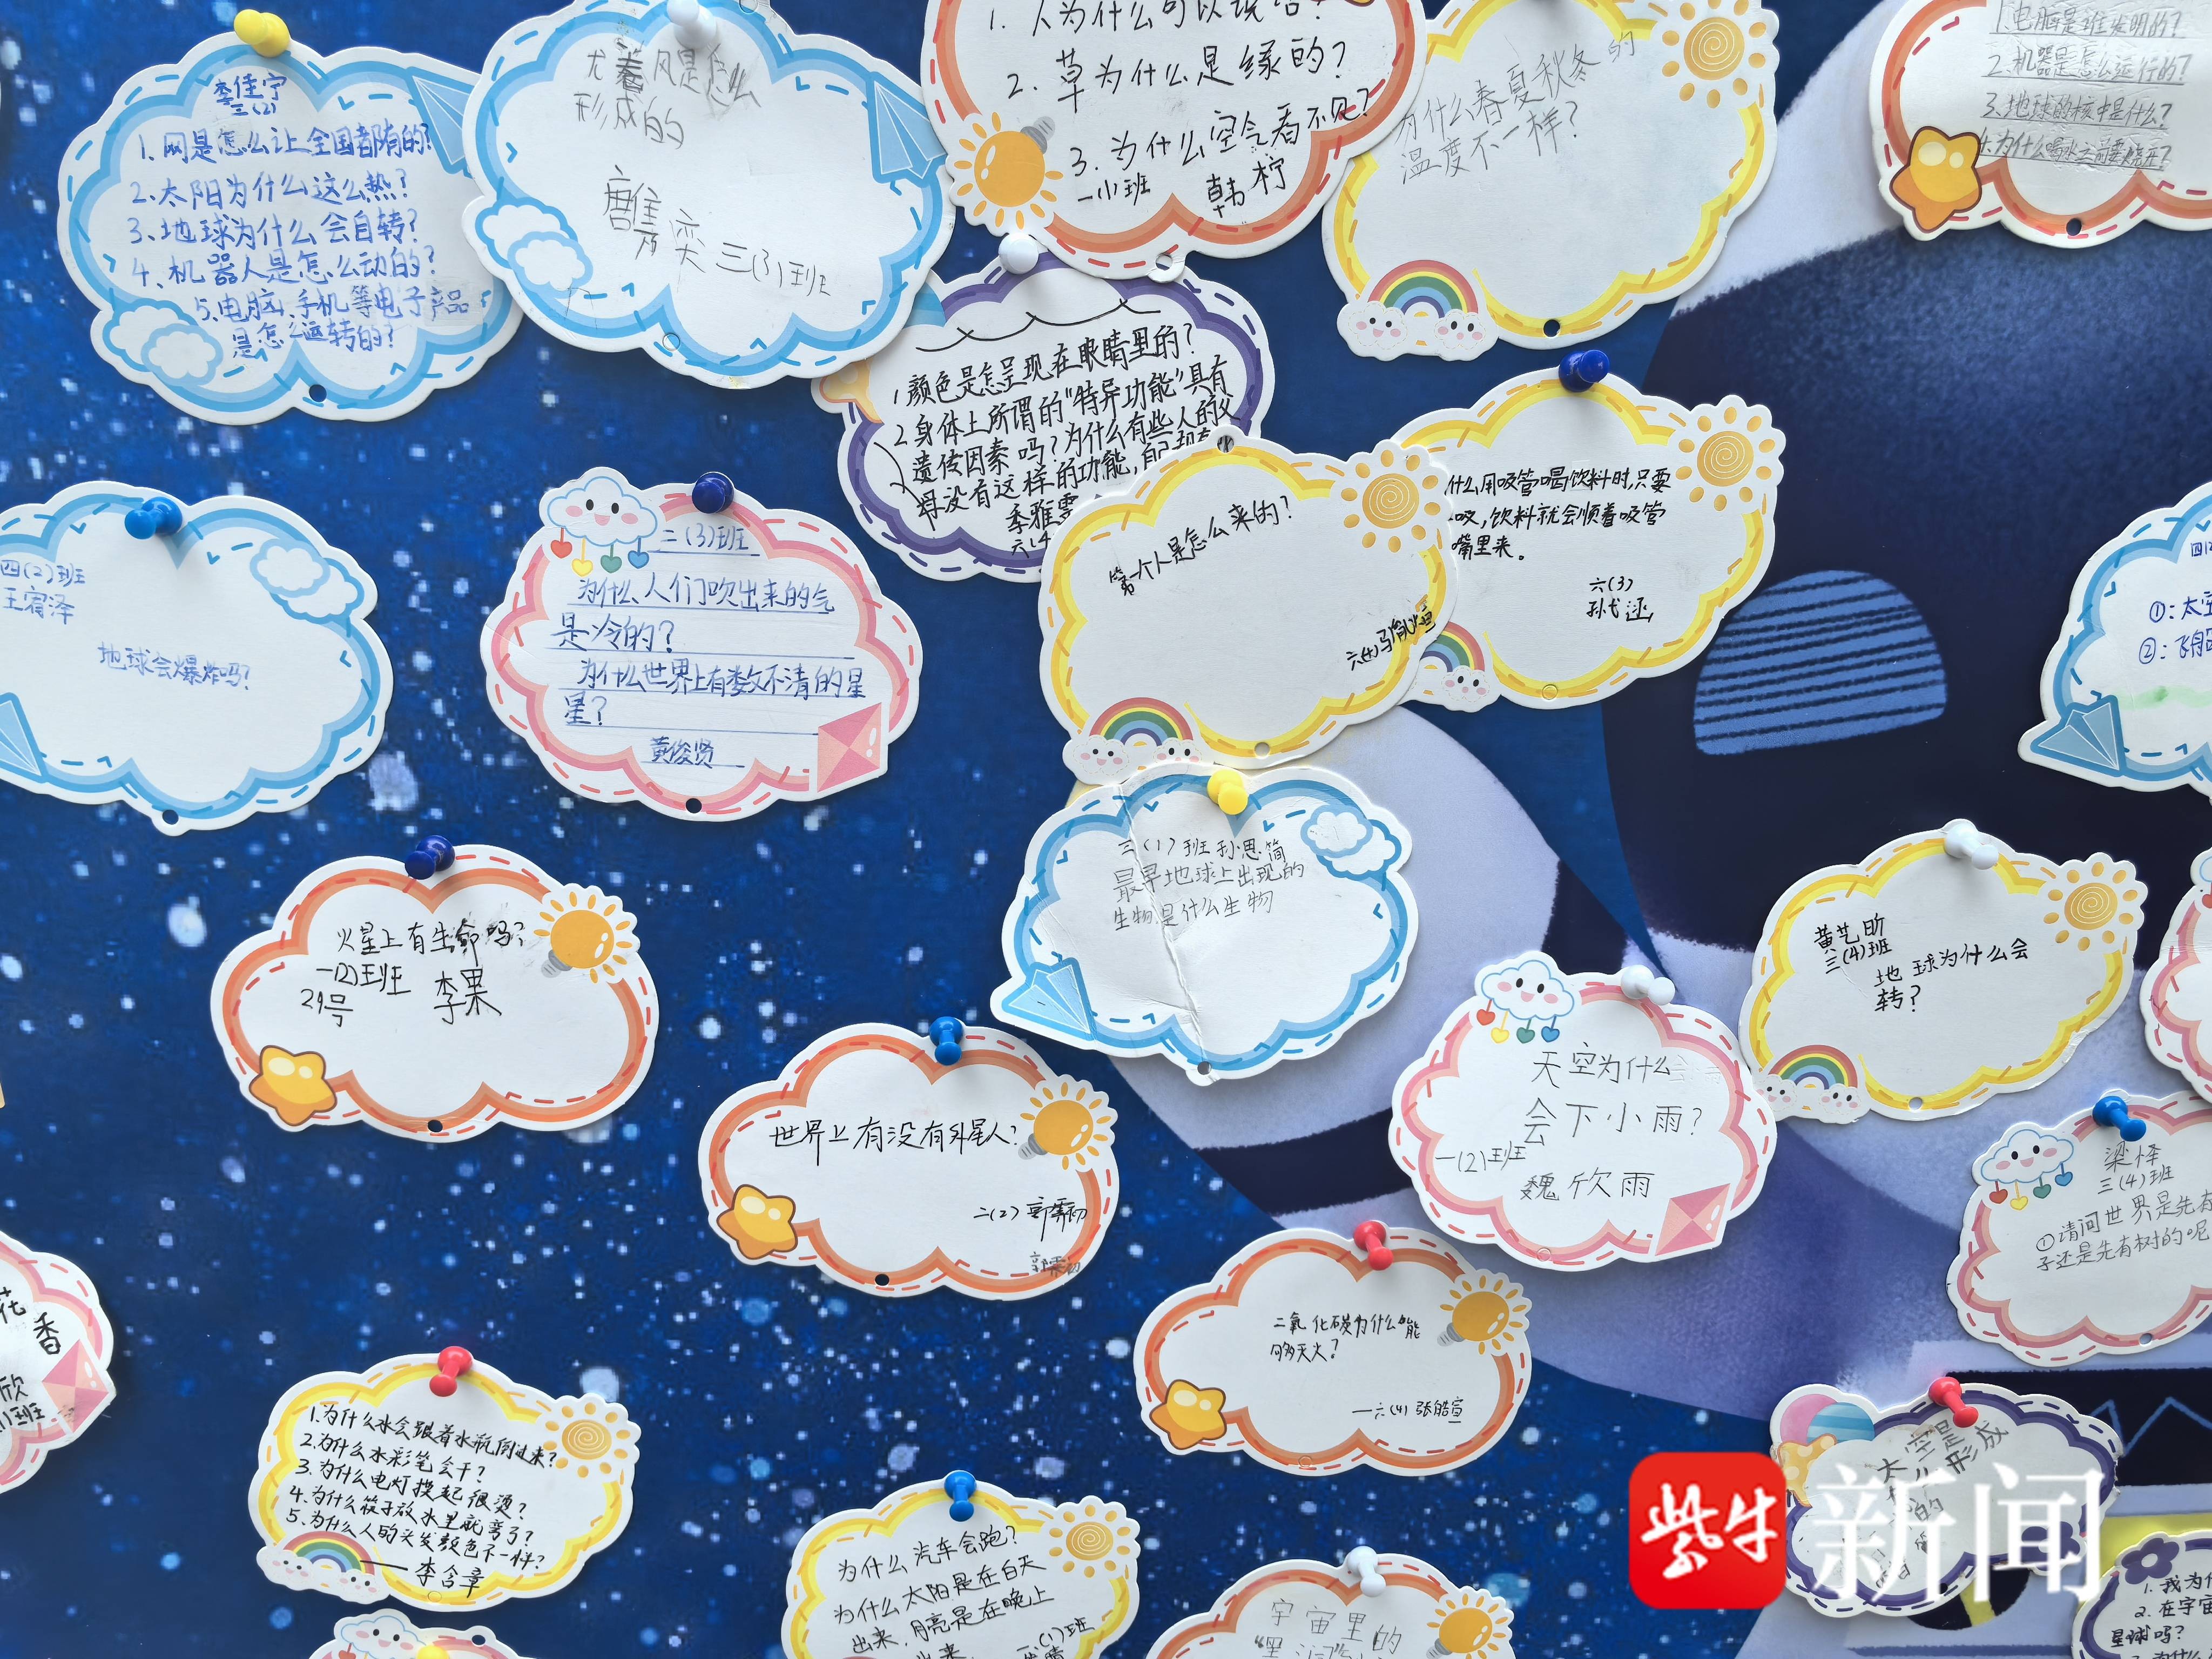 李佳宁
三(2)
1、网是怎么让全国都有的?
2、太阳为什么这么热?
3、地球为什么会自转?
4、机器人是怎么动的?
5、电脑、手机等电子产品
是怎么运转的?
风是怎么
形成的
三(3)班
2. 草为什么是绿的?
3. 为什么空气看不见?
一小班
韩柠
为什么春夏秋冬的
温度不一样?
1.电脑是谁发明的?
2.机器是怎么运行的?
3.地球的核中是什么?
4.为什么喝水之前要烧开?
1颜色是怎呈现在眼睛里的?
2身体上所谓的“特异功能”具有
遗传因素吗?为什么有些人的父
母没有这样的功能,自己却有
季雅雯
六(4
什么用吸管喝饮料时,只要
吸,饮料就会顺着吸管
嘴里来。
六(3)
第一个人是怎么来的?
六(4)
四(2)班
王宥泽
地球会爆炸吗?
三(3)班
为什么人们吹出来的气
是冷的?
为什么世界上有数不清的星
星?
黄俊贤
①:太空
②:飞船
三(1)班 孙思简
最早地球上出现的
生物是什么生物
火星上有生命吗?
一(2)班
李果
29号
黄艺昕
三(4)班
地球为什么会
转?
世界上有没有外星人?
二(2)
天空为什么
会下小雨?
一(2)班
魏欣雨
梁怿
三(4)班
①请问世界是先有
子还是先有树的呢
二氧化碳为什么能
够灭火?
—六(4) 张皓宣
花
香
欣
1)班
1.为什么水会跟着水瓶倒过来?
2.为什么水彩笔会干?
3.为什么电灯摸起很烫?
4.为什么筷子放水里就弯了?
5.为什么人的头发颜色不一样?
——李含章
为什么汽车会跑?
为什么太阳是在白天
出来,月亮是在晚上
出来
(1)班
宇宙里的
太空是
形成
的
1. 我为什
2. 在宇宙
星球吗?
紫牛新闻